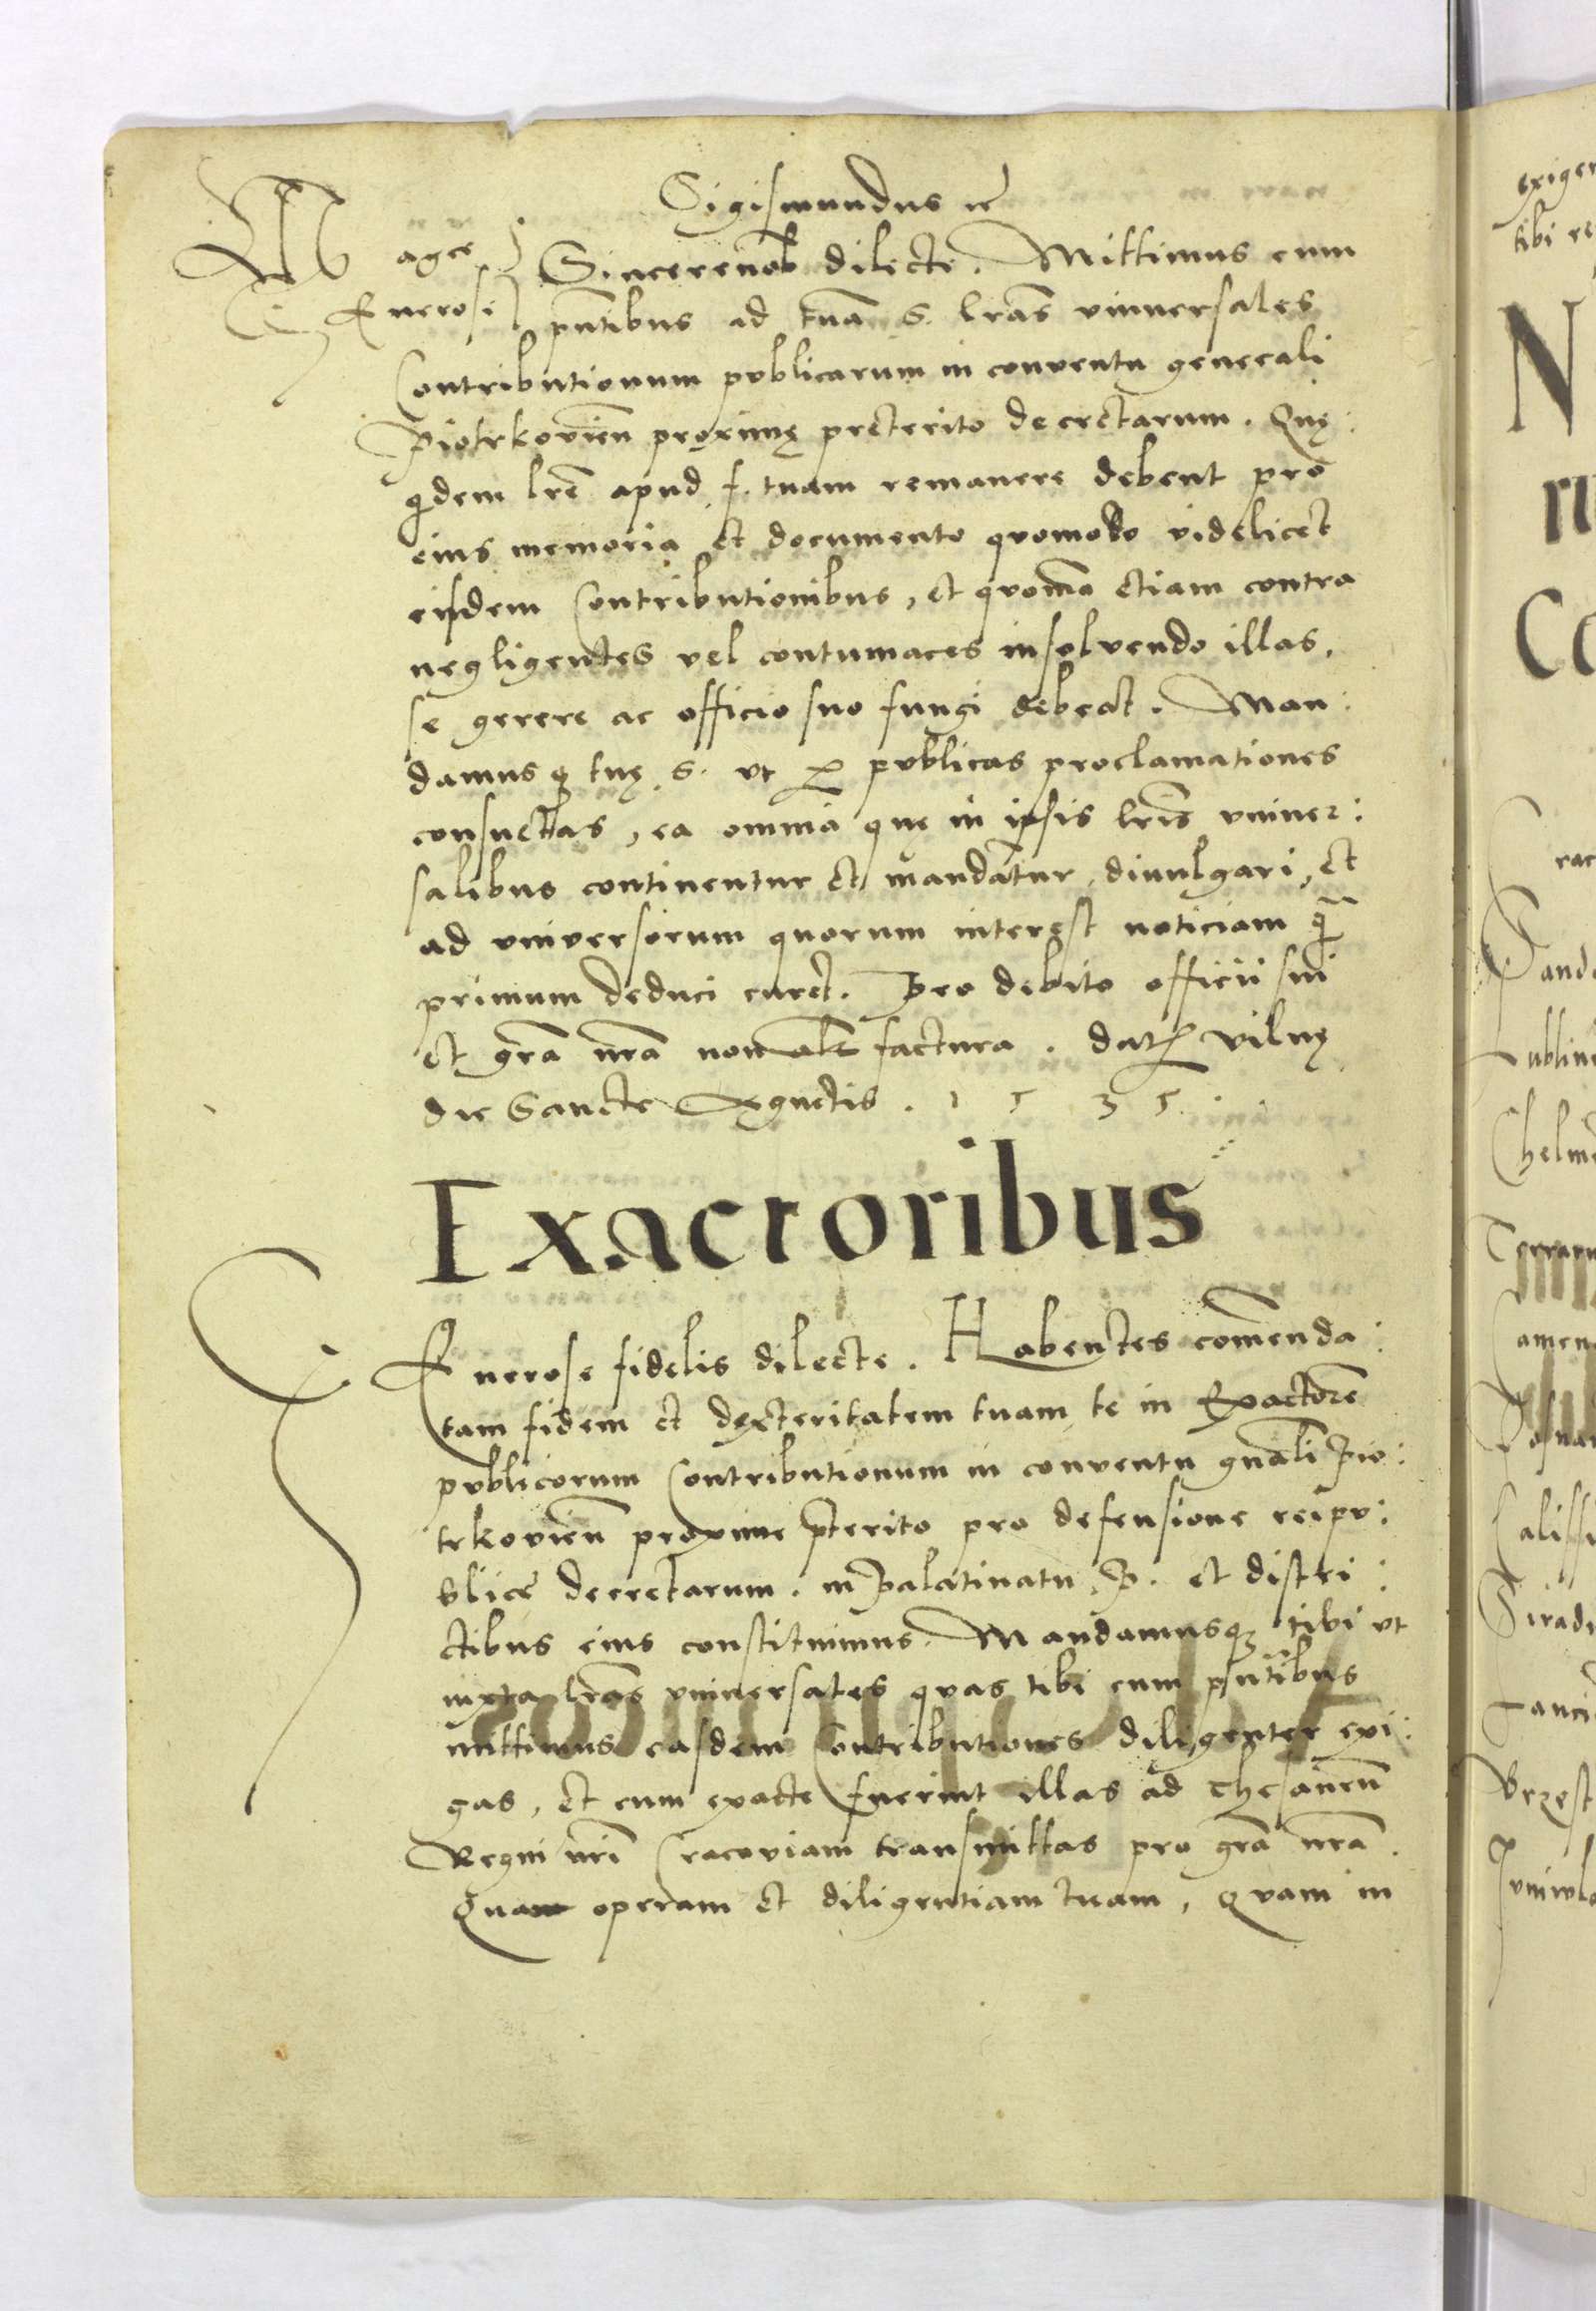 Sigismundus etc̃
Magce Sincerenob̃ dilecte. Mittimus cum
Generose pñtibus ad tuã S. lrãs vniuersales
Contributionum publicarum in conuentu generali
Piotrkovieñ proximę preterito decretarum. Quę:
qdem lrẽ apud f. tuam remanere debent pro
eius memoria et documento quomodo videlicet
eisdem Contributionibus, et quomõ etiam contra
negligentes vel contumaces insolvendo illas,
se gerere ac officio suo fungi debeat. Man:
damus q tuę S. vt p publicas proclamationes
consuetas, ea omnia quę in ipsis lrĩs vniuer:
salibus continentur et mandãtur, diuulgari, et
ad vniversorum quorum interest noticiam q̃
primum deduci curet. Pro debito officii sui
et grã nrã non aliter factura. Dat̃ Vilnę
die Sancte Agnetis. 1535.
Exactoribus
Generose fidelis dilecte. Habentes com̃enda:
tam fidem et dexteritatem tuam te in Exactorẽ
publicorum Contributionum in conventu gñali Pio:
trkovieñ proxime p̃terito pro defensione reipu:
blicę decretarum. in Palatinatu P. et distri:
ctibus eius constituimus. Mandamusq tibi vt
iuxta lrãs vniuersales quas tibi cum pñtibus
mittimus easdem Contributiones diligenter exi:
gas, et cum exacte fuerint illas ad thesaurũ
Regni nrĩ Cracoviam transmittas pro grã nrã.
Quam operam et diligentiam tuam, quam in
exigen
tibi re
N
ru
Co
rac
Sando
Lublin
Chelm
Terrarum
Camen
Posnan
Calissi
Siradi
Lanci
Brzest
Iuniwla